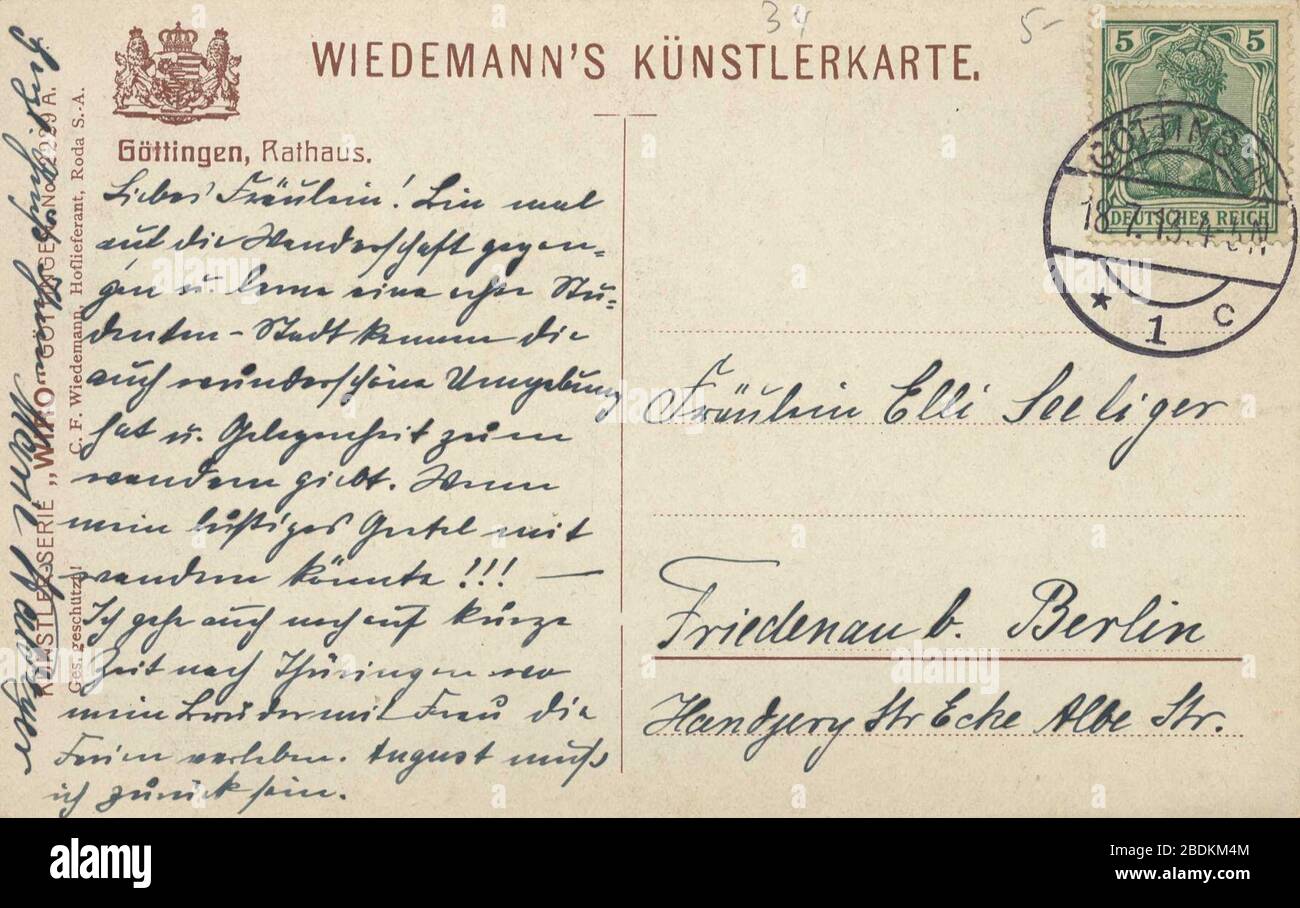 34
5-
WIEDEMANN'S KÜNSTLERKARTE.
5 5
DEUTSCHES REICH
GÖTTINGEN
18.7.13.4-5N
* 1 c
Göttingen, Rathaus.
Liebes Fräulein! Bin mal
auf die Wanderschaft gegan-
gen u. lerne eine echte Stu-
denten-Stadt kennen die
auch wunderschöne Umgebung
hat u. Gelegenheit zum
wandern giebt. Wenn
mein lustiges Gretel mit
wandern könnte!!! —
Ich gehe auch noch auf kurze
Zeit nach Thüringen wo
mein Bruder mit Frau die
Ferien verleben. August muß
ich zurück sein.
KÜNSTLER-SERIE „WIRO" GÖTTINGEN No. 2229 A.
Ges. geschützt! C. F. Wiedemann, Hoflieferant, Roda S.-A.
Fräulein Elli Seeliger
Friedenau b. Berlin
Handjery Str Ecke Albe Str.
alamy
Image ID: 2BDKM4M
www.alamy.com